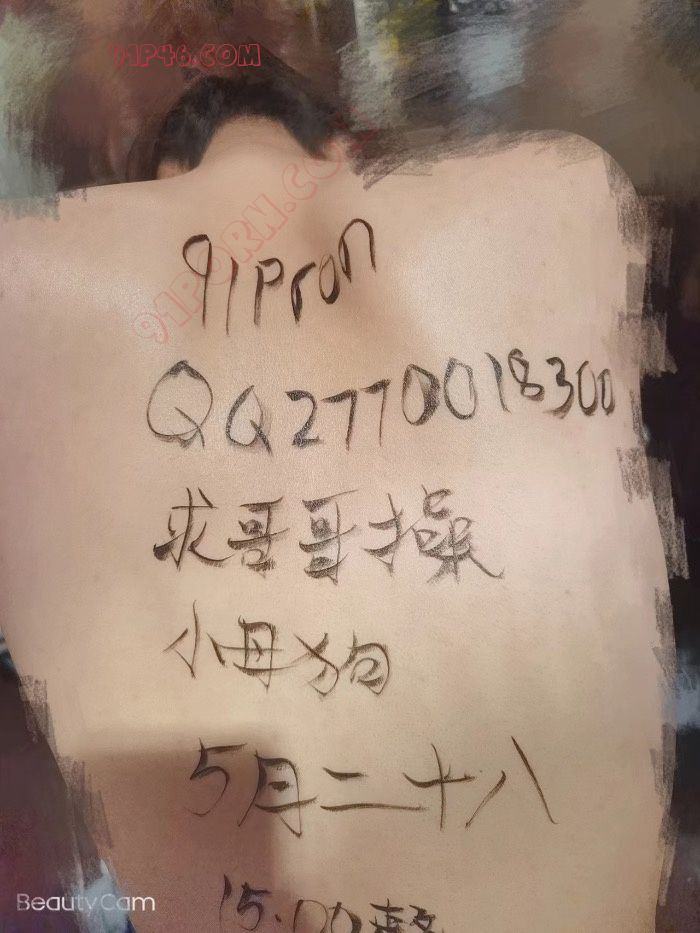 91P46.COM
91PORN.COM
91Pron
QQ2770018300
求哥哥操
小母狗
5月二十八
15:00整
BeautyCam